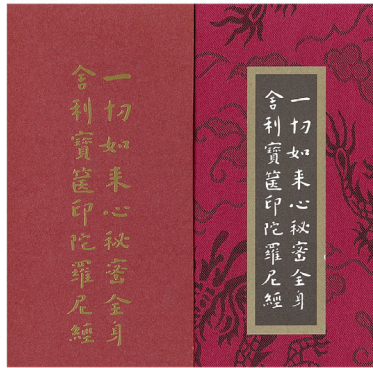 一切如来心秘密全身
舍利寶篋印陀羅尼經
一切如来心秘密全身
舍利寶篋印陀羅尼經